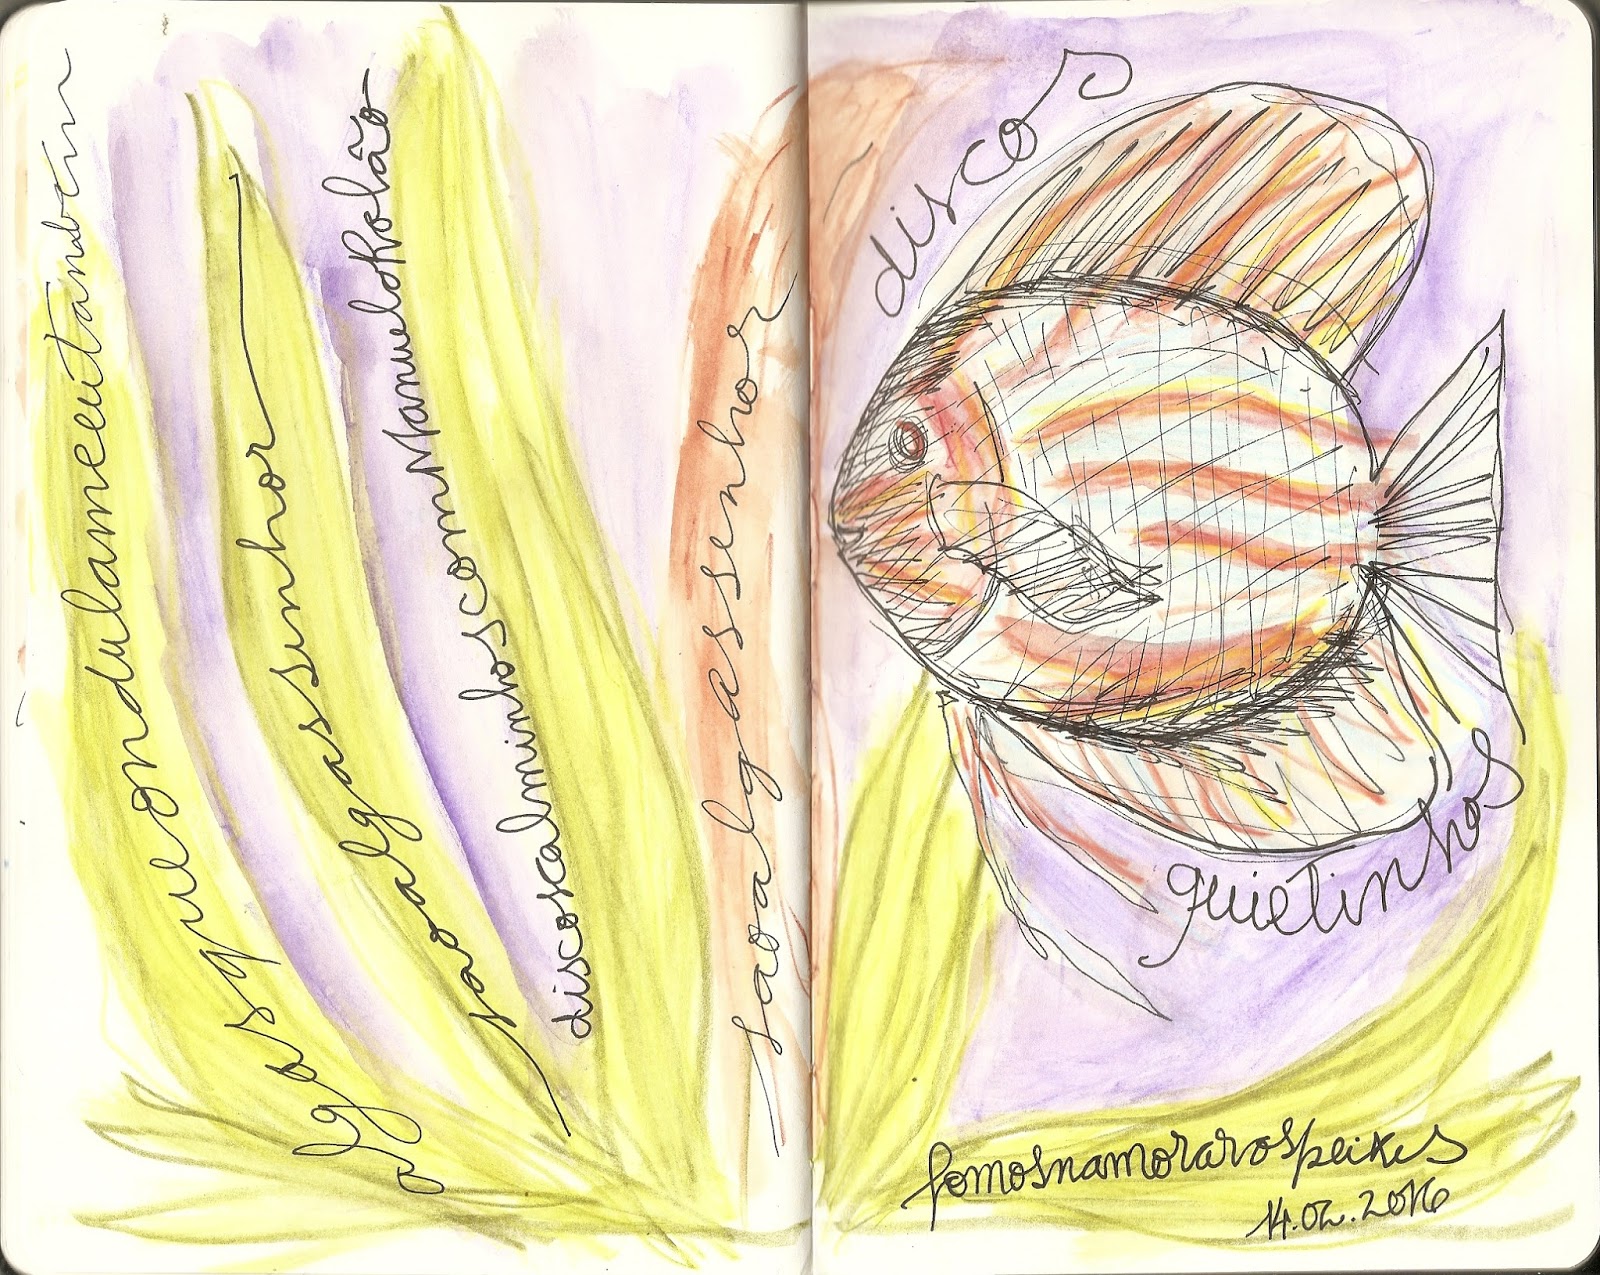 algasqueondulameeutambém
saoalgassenhor
discoscalminhoscomManueldoRolão
saoalgassenhor
discos
quietinhos
fomosnamorarospeixes
14.02.2016